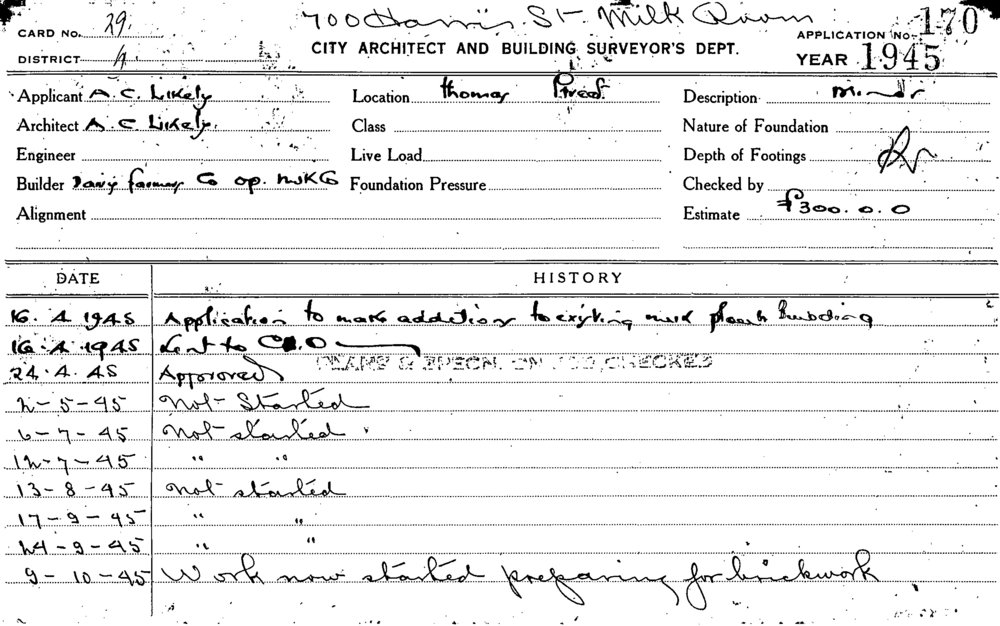 CARD No. 29.
700 Harris St Milk Room
APPLICATION No. 170
DISTRICT 4
CITY ARCHITECT AND BUILDING SURVEYOR'S DEPT.
YEAR 1945
Applicant A. C. Likely
Location Thomas Street
Description Minor
Architect A C Likely.
Class
Nature of Foundation
Engineer
Live Load
Depth of Footings
Builder Dairy farmers Co op. milk Co
Foundation Pressure
Checked by
Alignment
Estimate £300. 0. 0
DATE HISTORY
16. 4. 1945 Application to make additions to existing milk plant building
16. 4. 1945 Sent to
24. 4. 45 Approved PLANS & SPECN. ON CHECKED
2-5-45 Not Started
6-7-45 Not started
12-7-45 " "
13-8-45 Not started
17-9-45 " "
24-9-45 " "
9-10-45 Work now started preparing for brickwork